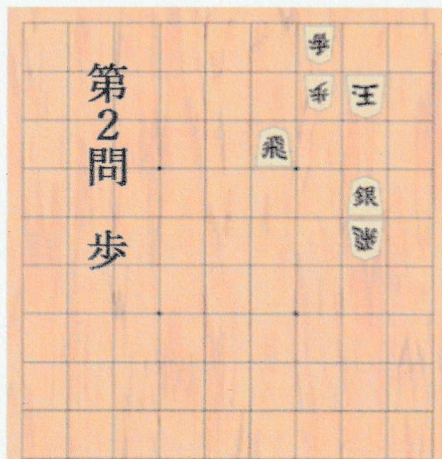 第2問 歩
香
歩
王
飛
銀